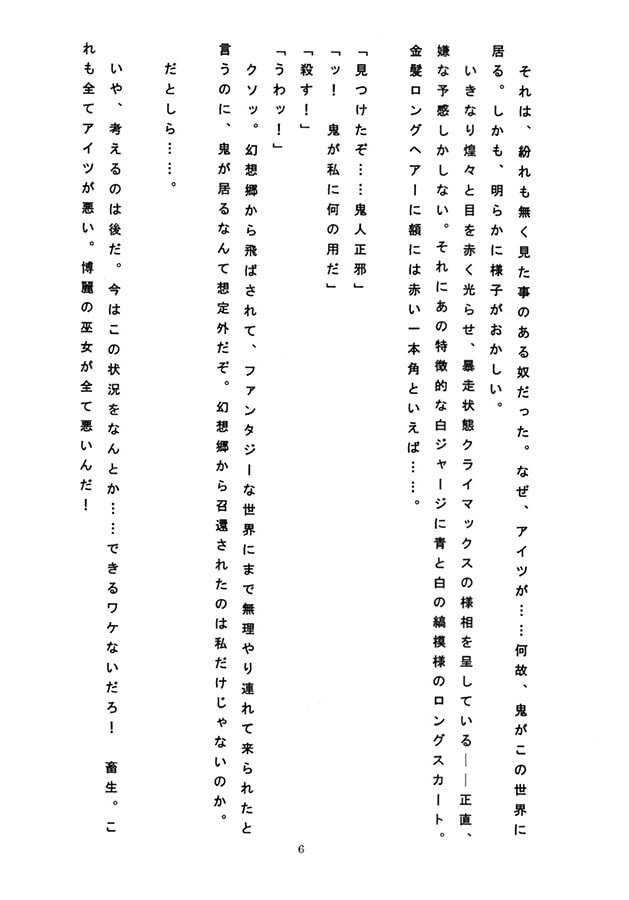 それは、紛れも無く見た事のある奴だった。なぜ、アイツが……何故、鬼がこの世界に
居る。しかも、明らかに様子がおかしい。
いきなり煌々と目を赤く光らせ、暴走状態クライマックスの様相を呈している――正直、
嫌な予感しかしない。それにあの特徴的な白ジャージに青と白の縞模様のロングスカート。
金髪ロングヘアーに額には赤い一本角といえば……。
「見つけたぞ……鬼人正邪」
「ッ！　鬼が私に何の用だ」
「殺す！」
「うわッ！」
クソッ。幻想郷から飛ばされて、ファンタジーな世界にまで無理やり連れて来られたと
言うのに、鬼が居るなんて想定外だぞ。幻想郷から召還されたのは私だけじゃないのか。
だとしら……。
いや、考えるのは後だ。今はこの状況をなんとか……できるワケないだろ！　畜生。こ
れも全てアイツが悪い。博麗の巫女が全て悪いんだ！
6